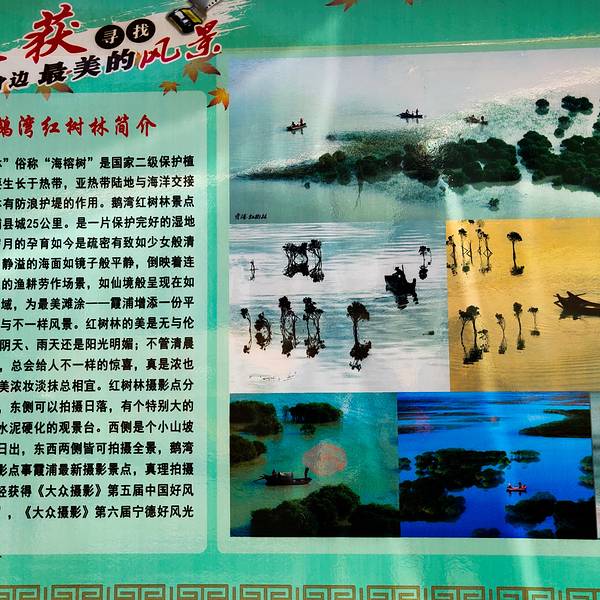 获 寻找
边最美的风景
鹅湾红树林简介
”俗称“海榕树”是国家二级保护植
生长于热带，亚热带陆地与海洋交接
有防浪护堤的作用。鹅湾红树林景点
县城25公里。是一片保护完好的湿地
月的孕育如今是疏密有致如少女般清
静溢的海面如镜子般平静，倒映着连
的渔耕劳作场景，如仙境般呈现在如
域，为最美滩涂——霞浦增添一份平
与不一样风景。红树林的美是无与伦
阴天、雨天还是阳光明媚；不管清晨
，总会给人不一样的惊喜，真是浓也
美浓妆淡抹总相宜。红树林摄影点分
，东侧可以拍摄日落，有个特别大的
水泥硬化的观景台。西侧是个小山坡
日出，东西两侧皆可拍摄全景，鹅湾
影点事霞浦最新摄影景点，真理拍摄
经获得《大众摄影》第五届中国好风
”，《大众摄影》第六届宁德好风光